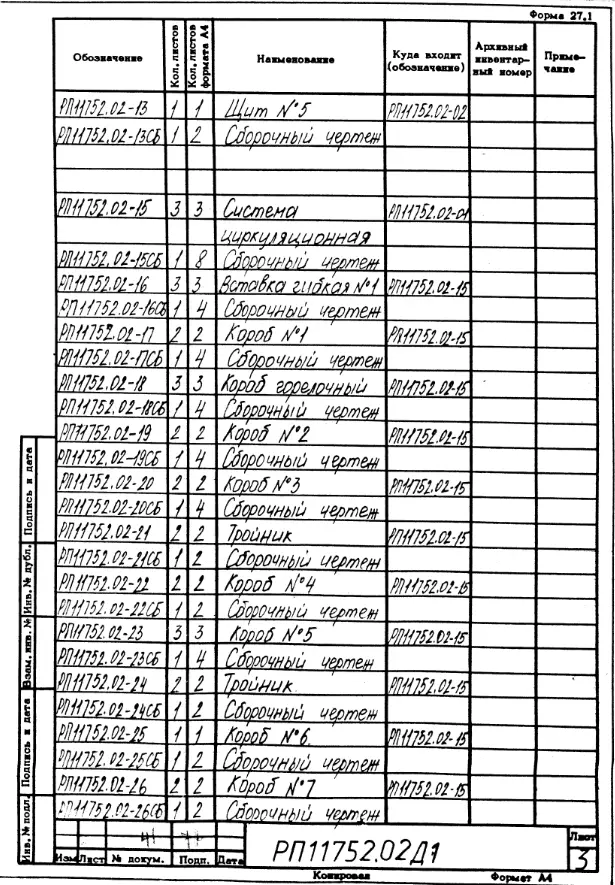 Форма 27.1
Обозначение Кол. листов Кол. листов формата А4 Наименование Куда входит (обозначение) Архивный инвентар-ный номер Приме-чание
РП11752.02-13 1 1 Щит №5 РП11752.02-02
РП11752.02-13СБ 1 2 Сборочный чертеж
РП11752.02-15 3 3 Система РП11752.02-01
циркуляционная
РП11752.02-15СБ 1 8 Сборочный чертеж
РП11752.02-16 3 3 Вставка гибкая №1 РП11752.02-15
РП11752.02-16СБ 1 4 Сборочный чертеж
РП11752.02-17 2 2 Короб №1 РП11752.02-15
РП11752.02-17СБ 1 4 Сборочный чертеж
РП11752.02-18 3 3 Короб горелочный РП11752.02-15
РП11752.02-18СБ 1 4 Сборочный чертеж
РП11752.02-19 2 2 Короб №2 РП11752.02-15
РП11752.02-19СБ 1 4 Сборочный чертеж
РП11752.02-20 2 2 Короб №3 РП11752.02-15
РП11752.02-20СБ 1 4 Сборочный чертеж
РП11752.02-21 2 2 Тройник РП11752.02-15
РП11752.02-21СБ 1 2 Сборочный чертеж
РП11752.02-22 2 2 Короб №4 РП11752.02-15
РП11752.02-22СБ 1 2 Сборочный чертеж
РП11752.02-23 3 3 Короб №5 РП11752.02-15
РП11752.02-23СБ 1 4 Сборочный чертеж
РП11752.02-24 2 2 Тройник РП11752.02-15
РП11752.02-24СБ 1 2 Сборочный чертеж
РП11752.02-25 1 1 Короб №6 РП11752.02-15
РП11752.02-25СБ 1 2 Сборочный чертеж
РП11752.02-26 2 2 Короб №7 РП11752.02-15
РП11752.02-26СБ 1 2 Сборочный чертеж
Подпись и дата
Инв. № дубл.
Взам. инв. №
Подпись и дата
Инв. № подл.
Изм Лист № докум. Подп. Дата
РП11752.02Д1
Лист
3
Копировал Формат А4